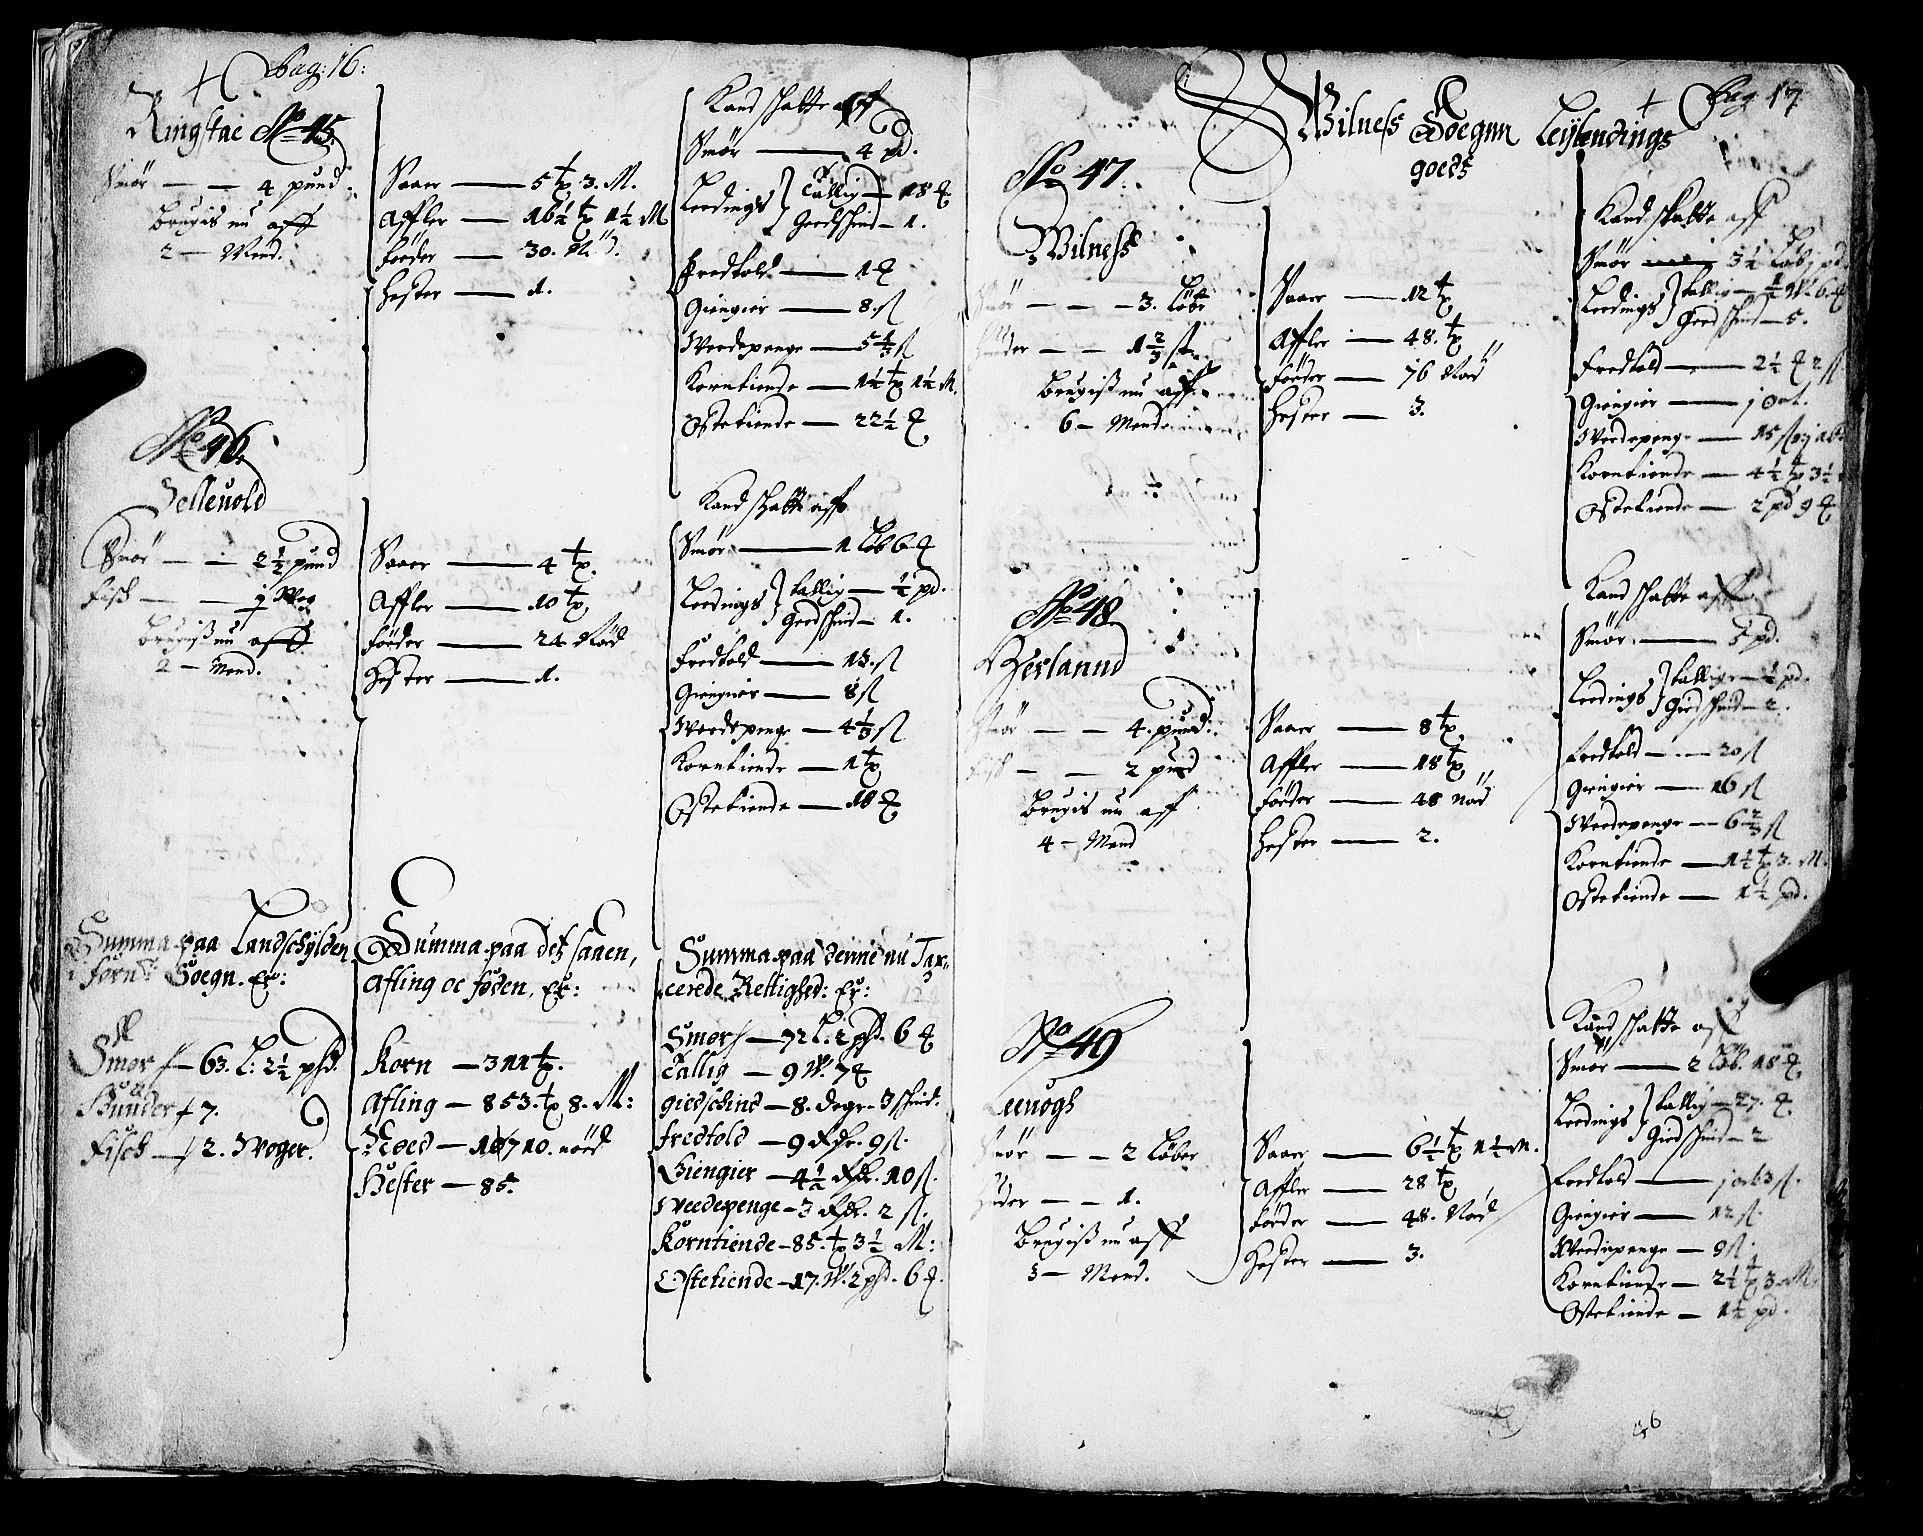 pag: 16:
Ringstae No 45.
Smör — — 4 pund
Brugis nu aff
2 — Mend.
Saaer — 5 tp 3. M.
Affler — 16½ tp 1½ M
föeder — 30. Nöd.
Hester — 1.
Kand schatte aff
Smör — 4 pd.
Leedings } Tallig — 18 ℔
Geedschind — 1.
Fredtold — 1 ℔
Giengier — 8 ß
Weedepenge — 5⅓ ß
Korntiende — 1½ tp 1½ M.
Ostetiende — 22½ ℔
No 46.
Hellevold
Smör — — 2½ pund
Fisk — — 1 Wog
Brugiß nu aff
2 — Mend.
Saaer — 4 tp.
Affler — 10 tp
föeder — 24 Nöd
Hester — 1.
Kand schatte aff
Smör — 1 Löb 6 ℔
Leedings } tallig — ½ pd.
Geedschind — 1.
Fredtold — 15. ß
Giengier — 8 ß
Weedepenge — 4⅓ ß
Korntiende — 1 tp
Ostetiende — 18 ℔
Summa paa Landschylden
i förne Soegn. Er:
Smör — 63. L: 2½ pfd.
Huuder — 7.
Fisch — 2. Woger.
Summa paa det saaen,
Afling oc föden, Er:
Korn — 311 tp.
Afling — 853. tp 8. M:
Noed — 1710. nöed
Hester — 85.
Summa paa denne nu Tax-
cerede Rettighed: Er:
Smör — 72 L. 2 pfd. 6 ℔
Tallig — 9 W. 7 ℔
giedschind — 8. deger 3 schind.
fredtold — 9 Rdr. 9 ß.
Giengier — 4½ Rdr. 10 ß.
Weedepenge — 3 Rdr. 2 ß.
Korntiende — 85. tp 3½ M:
Ostetiende — 17. W. 2 pfd. 6 ℔.
pag 17
Wilness Soegnn Leylendings
goeds
No 47.
Wilness
Smör — — 3. Löbe
Huuder — — 1⅔ st
Brugiß nu aff
6 — Mend
Saaer — 12 tp
Affler — 48. tp
föeder — 76 Nöd
Hester — 3.
Kand schatte aff
Smör — 3½ Löb 1 pd.
Leedings } tallig — ½ W. 6 ℔
Geedschind — 5.
Fredtold — 2½ ℔ 2 ß
Giengier — j ort.
Weedepenge — 15 ß
Korntiende — 4½ tp 3½
Ostetiende — 2 pd 9 ℔
No 48.
Herlannd
Smör — — 4. pund.
Fisk — — 2 pund
Brugis nu aff
4 — Mend
Saaer — 8 tp.
Affler — 18 tp
föeder — 48 nöd
Hester — 2.
Kand schatte aff
Smör — 5 pd.
Leedings } tallig — ½ pd.
Giedschind — 2.
Fredtold — 30 ß
Giengier — 16 ß
Weedepenge — 6⅔ ß
Korntiende — 1½ tp 3. M.
Ostetiende — 1½ pd.
No 49
Leuogh
Smör — — 2 Löber
Huder — — 1.
Brugiß nu aff
3 — Mend.
Saaer — 6½ tp 1½ M.
Affler — 28 tp
föeder — 48. Nöd
Hester — 3.
Kand schatte aff
Smör — 2 Löb. 18 ℔
Leedings } tallig — 27. ℔
Giedschind — 2
Fredtold — j ort 3 ß.
Giengier — 12 ß.
Weedepenge — 9 ß.
Korntiende — 2½ tp 3. M.
Ostetiende — 1½ pd.